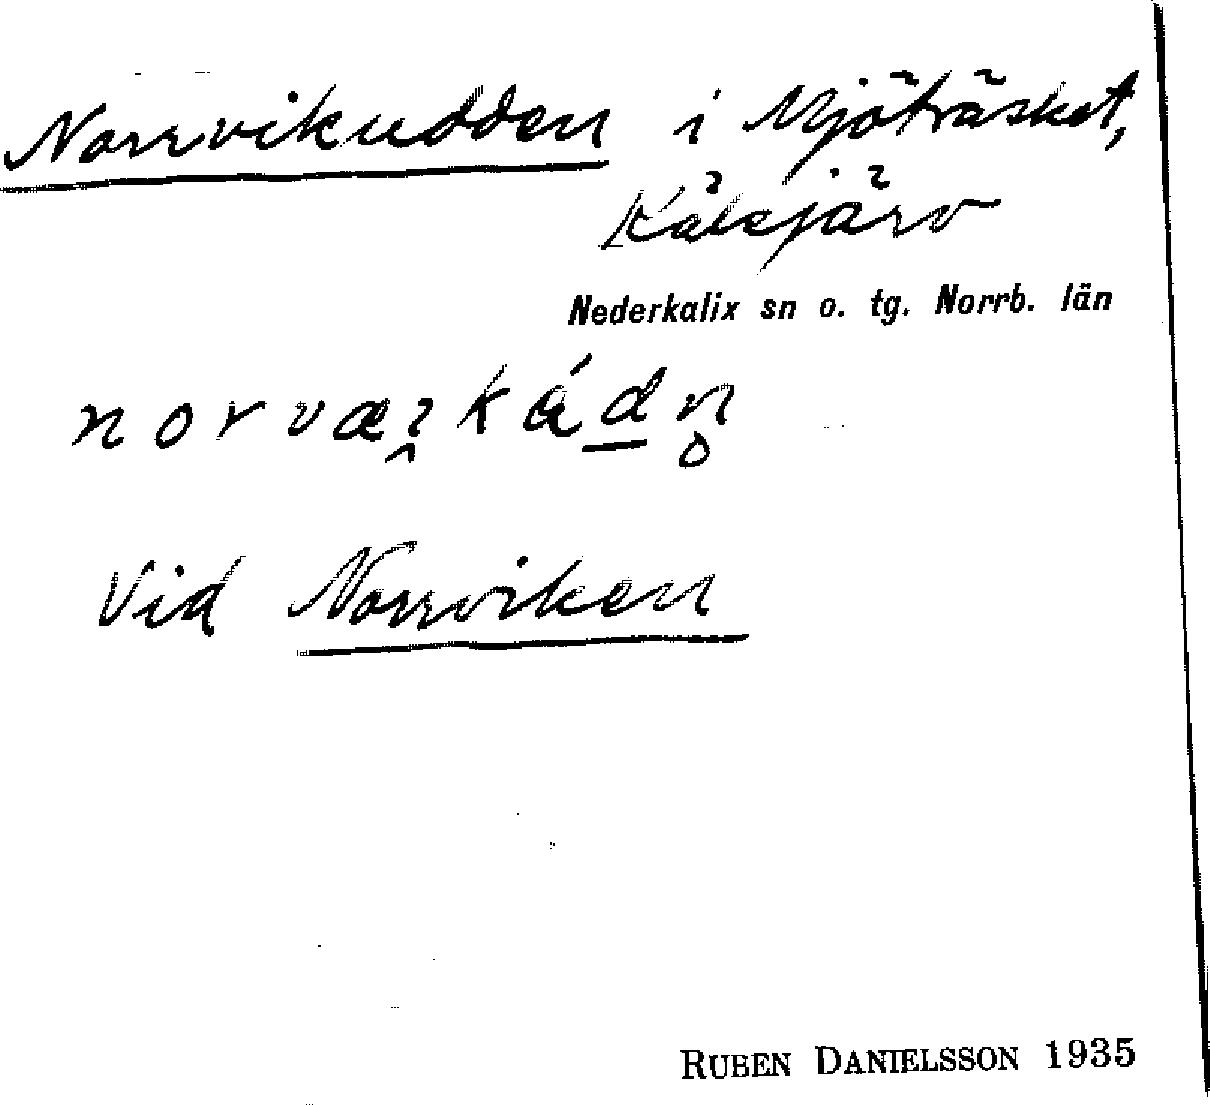 Norrvikudden i Mjöträsket,
Kälsjärv
Nederkalix sn o. tg. Norrb. län
Vid Norrviken
RUBEN DANIELSSON 1935